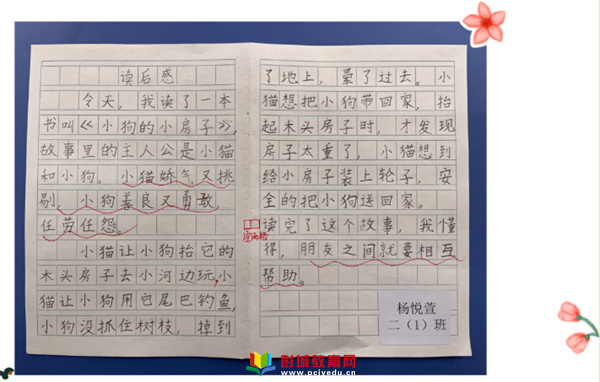 读后感
今天，我读了一本
书叫《小狗的小房子》，
故事里的主人公是小猫
和小狗。小猫娇气又挑
剔，小狗善良又勇敢，
任劳任怨。
小猫让小狗抬它的
木头房子去小河边玩，小
猫让小狗用它尾巴钓鱼，
小狗没抓住树枝，掉到
了地上，晕了过去。小
猫想把小狗带回家，抬
起木头房子时，才发现
房子太重了，小猫想到
给小房子装上轮子，安
全的把小狗送回家。
空两格
读完了这个故事，我懂
得，朋友之间就要相互
帮助。
杨悦萱
二（1）班
彭城教育网
www.pcivedu.cn